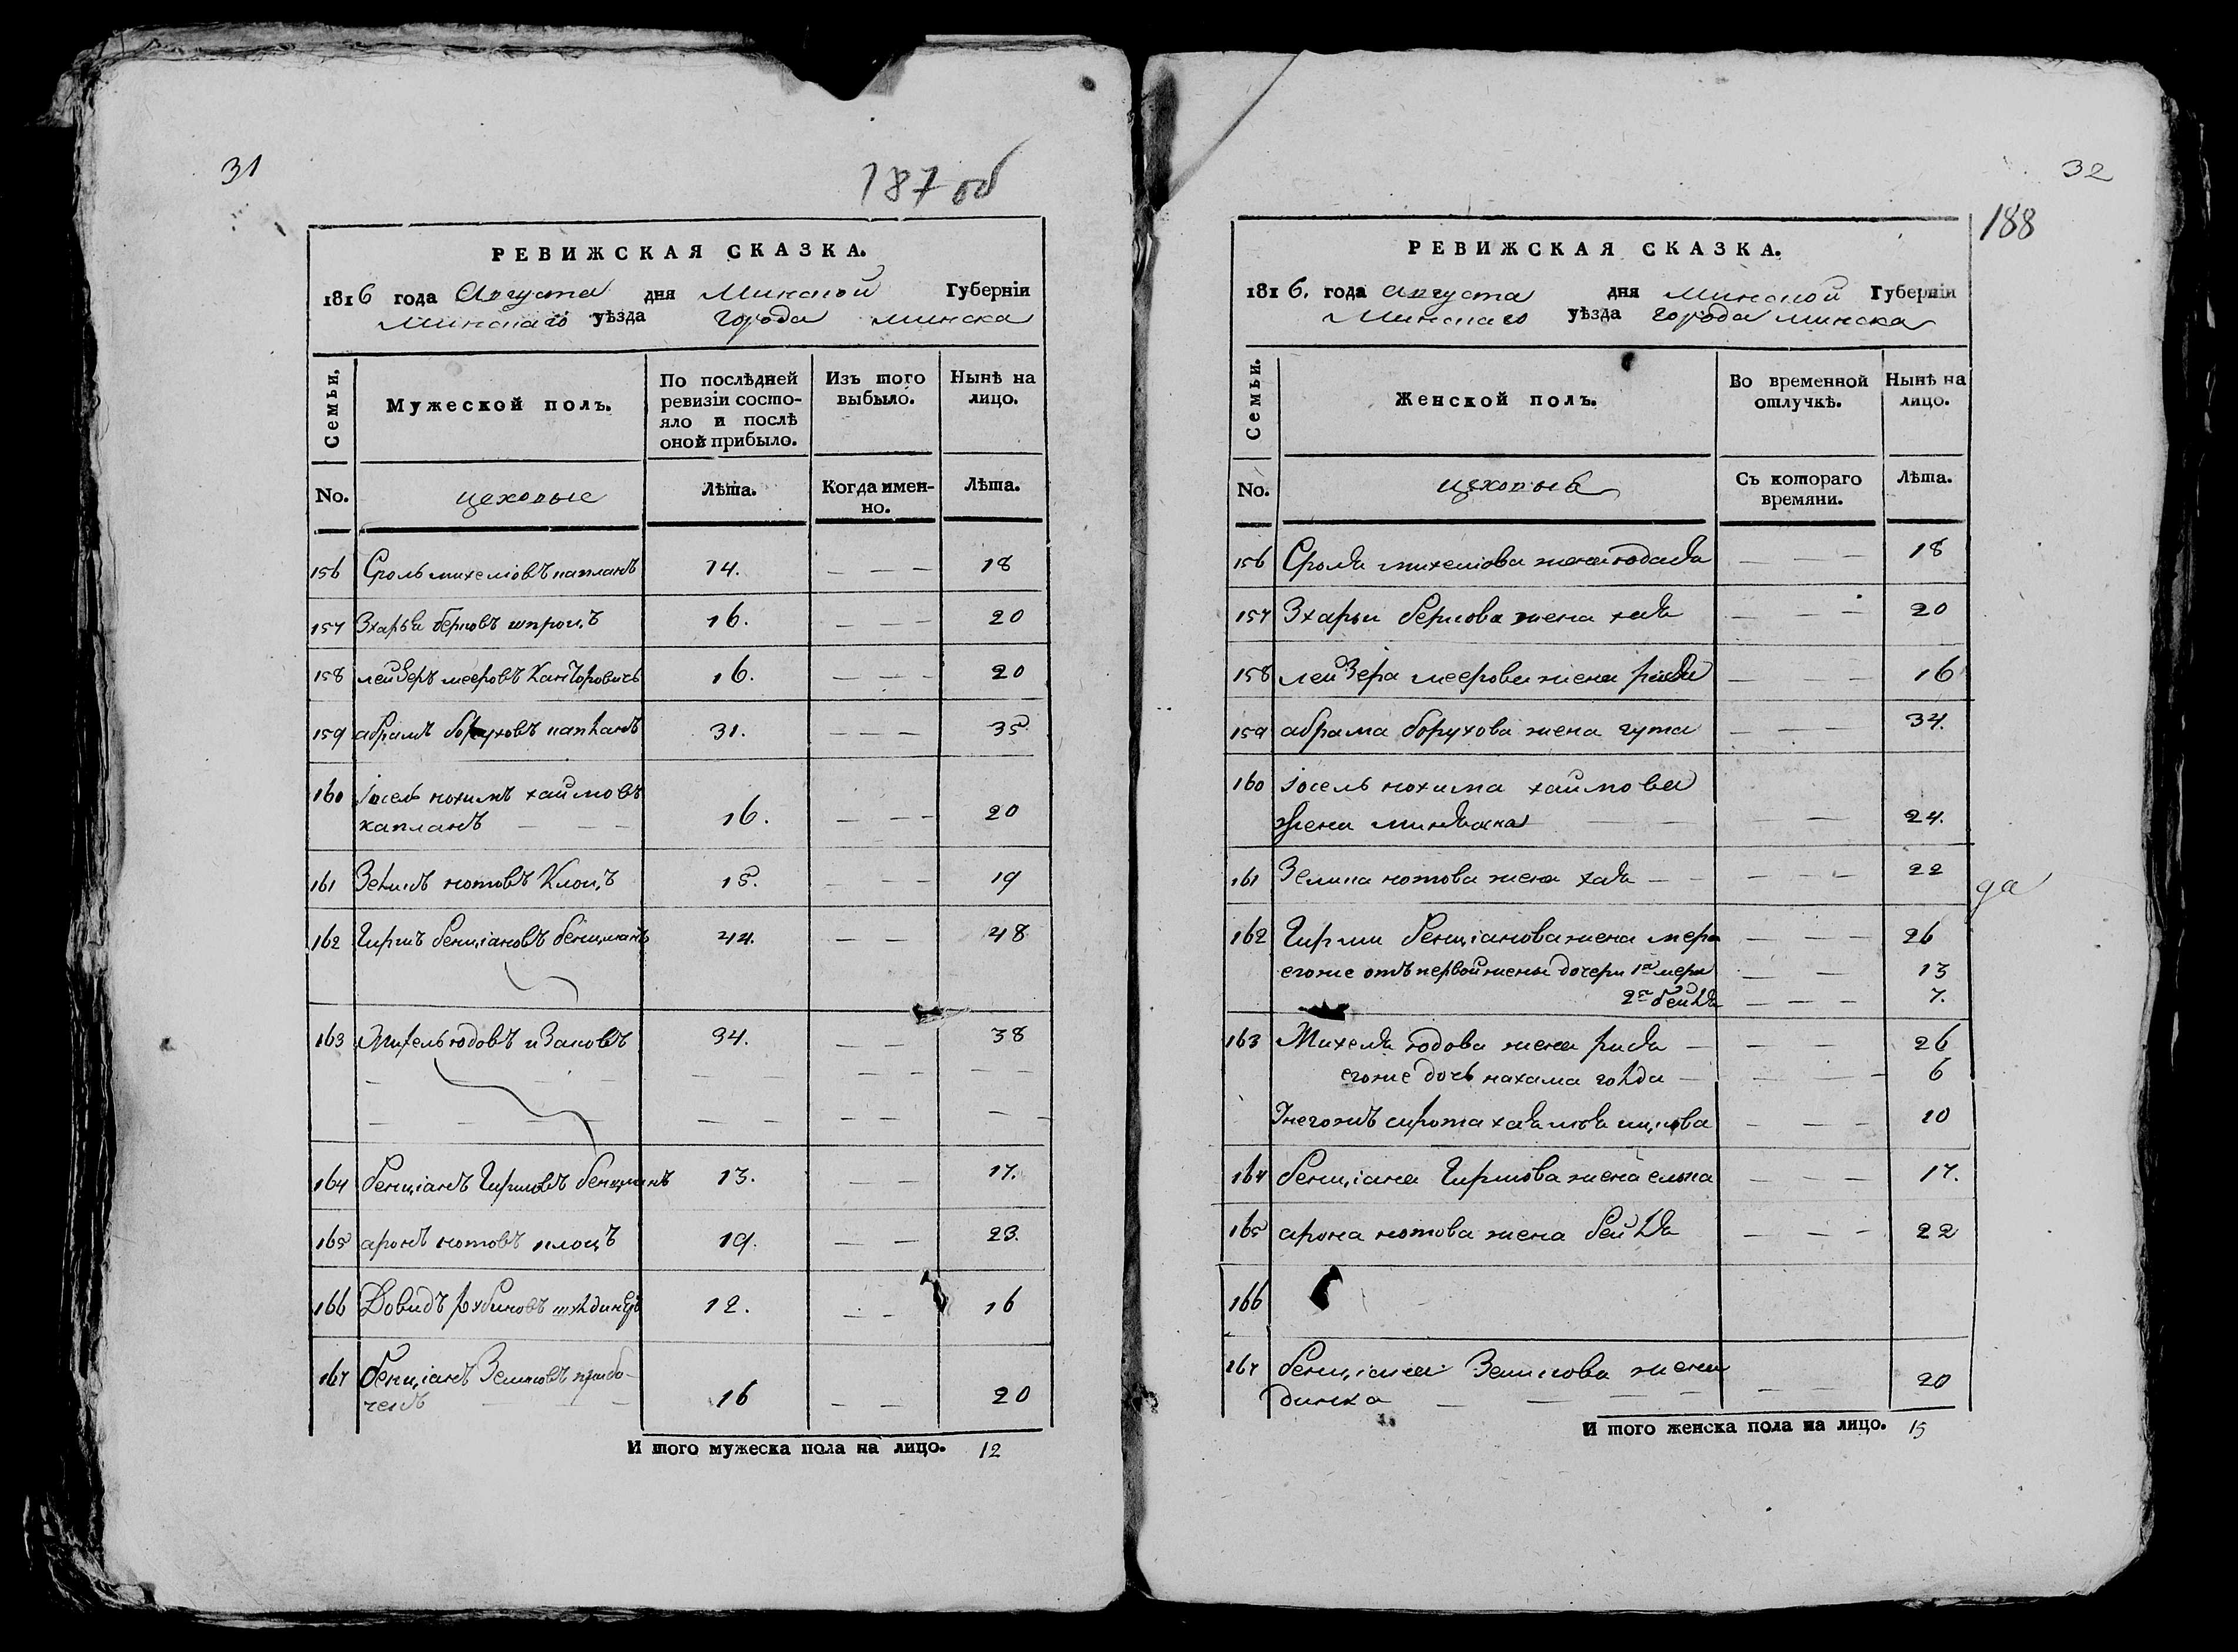 31
187 об
РЕВИЖСКАЯ СКАЗКА.
1816 года Августа дня Минской Губерніи
Минскаго уѣзда города минска
Семьи.
Мужеской полъ.
По послѣдней ревизіи состо-
яло и послѣ
оной прибыло.
Изъ того
выбыло.
Нынѣ на
лицо.
No.
цеховые
Лѣта.
Когда имен-
но.
Лѣта.
156 Сроль михелiовъ капланъ 14. — — — 18
157 Зхарья берковъ шпроцъ 16. — — — 20
158 лейзеръ мееровъ Канторовичь 16. — — — 20
159 абрамъ боруховъ капланъ 31. — — — 35
160 іосель нохимъ хаимовъ
капланъ — — — 16. — — — 20
161 Зеликъ нотовъ Клоцъ 15. — — — 19
162 Гиршъ бенціановъ бенцманъ 44. — — 48
163 Михель юдовъ 34. — — 38
164 бенціанъ Гиршовъ бенцманъ 13. — — 17.
165 аронъ нотовъ клоцъ 19. — — 23.
166 Довидъ рубиновъ 12. — — 16
167 бенціанъ Зеликовъ
16 — — 20
И того мужеска пола на лицо. 12
32
188
РЕВИЖСКАЯ СКАЗКА.
1816. года августа дня минской Губерніи
Минскаго уѣзда города минска
Семьи.
Женской полъ.
Во временной
отлучкѣ.
Нынѣ на
лицо.
No.
цеховые
Съ котораго
времяни.
Лѣта.
156 Сроля михелiова жена юдася — — — 18
157 Зхарьи беркова жена хая — — — 20
158 лейзера меерова жена — — — 16
159 абрама борухова жена гута — — — 34.
160 іосель нохима хаимова
жена — — — — 24.
161 Зелика нотова жена хая — — — — 22
да
162 Гирши бенціанова жена мера — — — 26
егоже отъ первой жены дочери 1я мера — — 13
2я бейля — — — 7.
163 Михеля юдова жена — — — 26
егоже дочь нахама голда — — — 6
Унегожъ сирота хая — — — 10
164 бенціана Гиршова жена елька — — — 17.
165 арона нотова жена бейля — — — 22
166
167 бенціана Зеликова жена
динха — — — — — 20
И того женска пола на лицо. 15